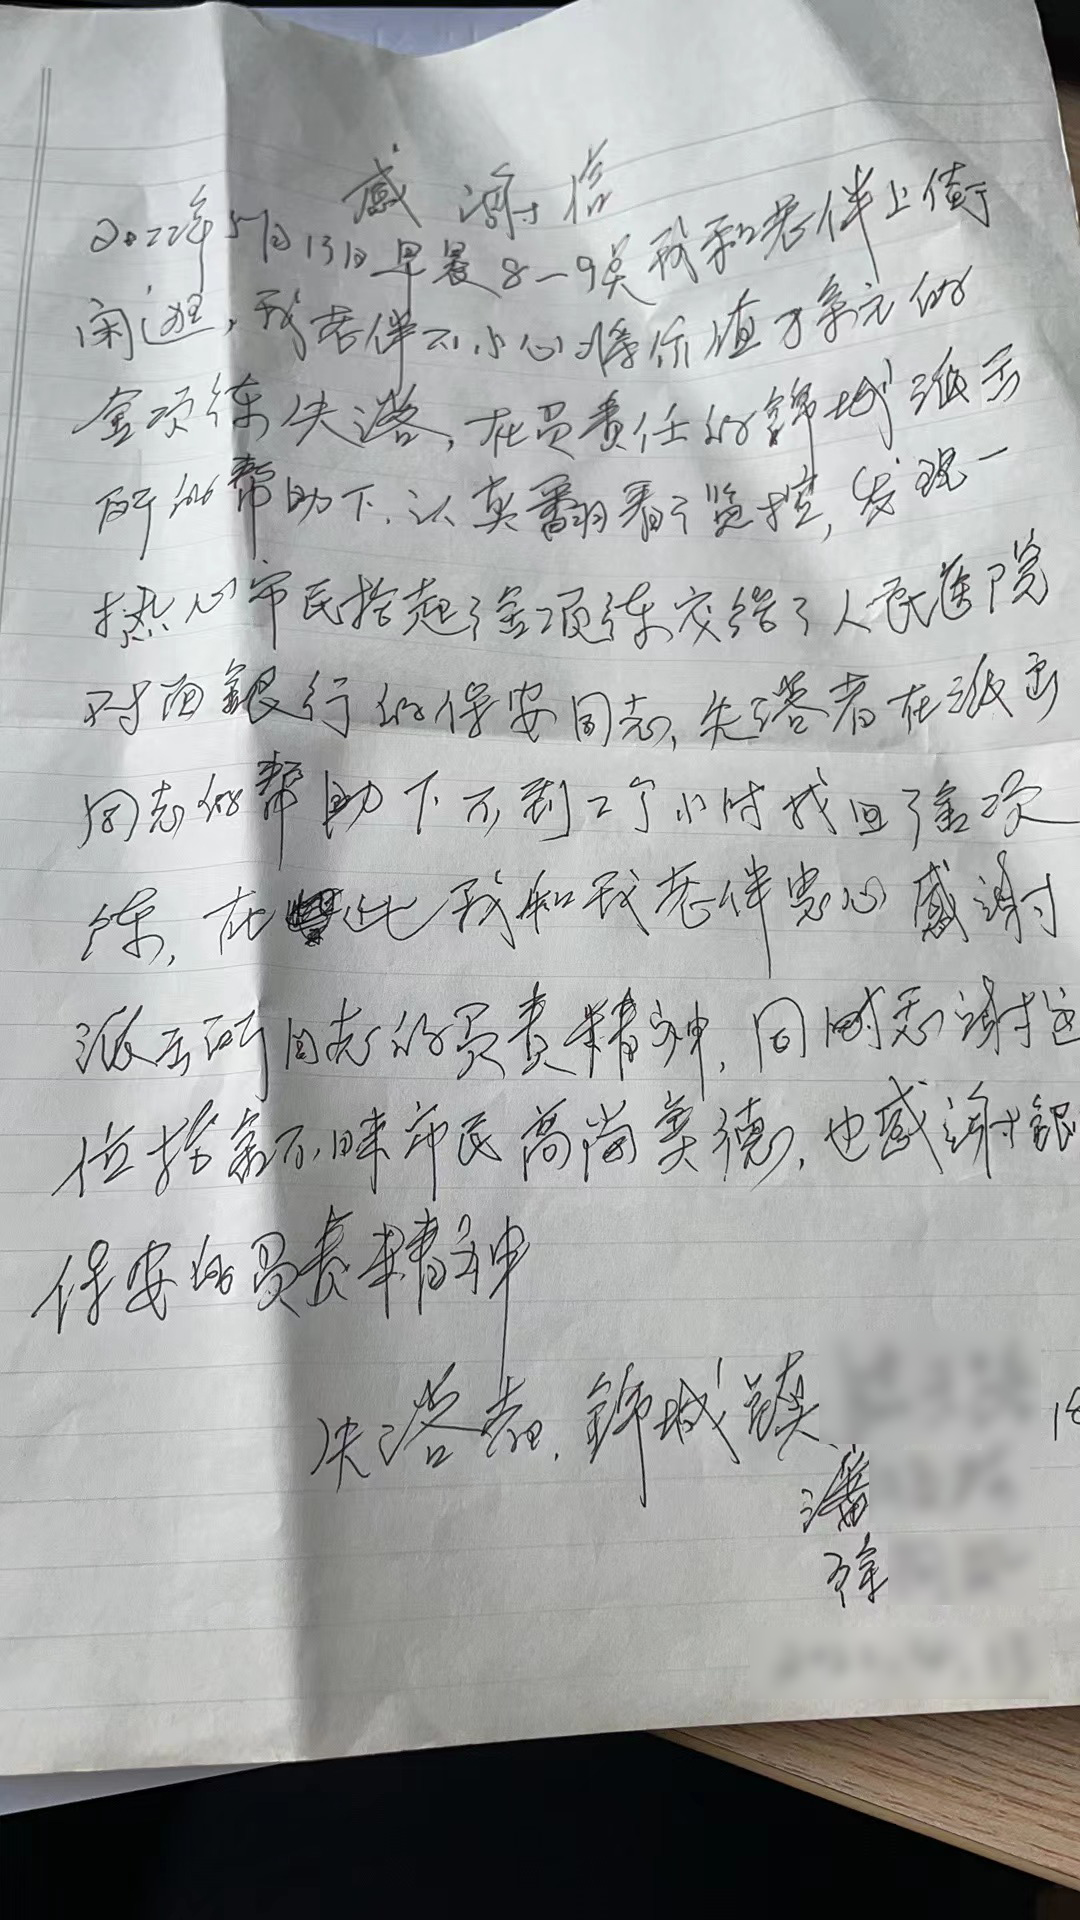 感谢信
2022年5月13日早晨8-9点我和老伴上街
闲逛,我老伴不小心将价值万余元的
金项链失落,在负责任的锦城派出
所的帮助下,认真翻看了监控,发现一
热心市民拾起了金项链交给了人民医院
对面银行的保安同志,失落者在派出
同志的帮助下不到2个小时找回了金项
链,在此我和我老伴忠心感谢
派出所同志的负责精神,同时感谢这
位拾金不昧市民高尚美德,也感谢银
保安的负责精神
失落者.锦城镇.
潘
徐